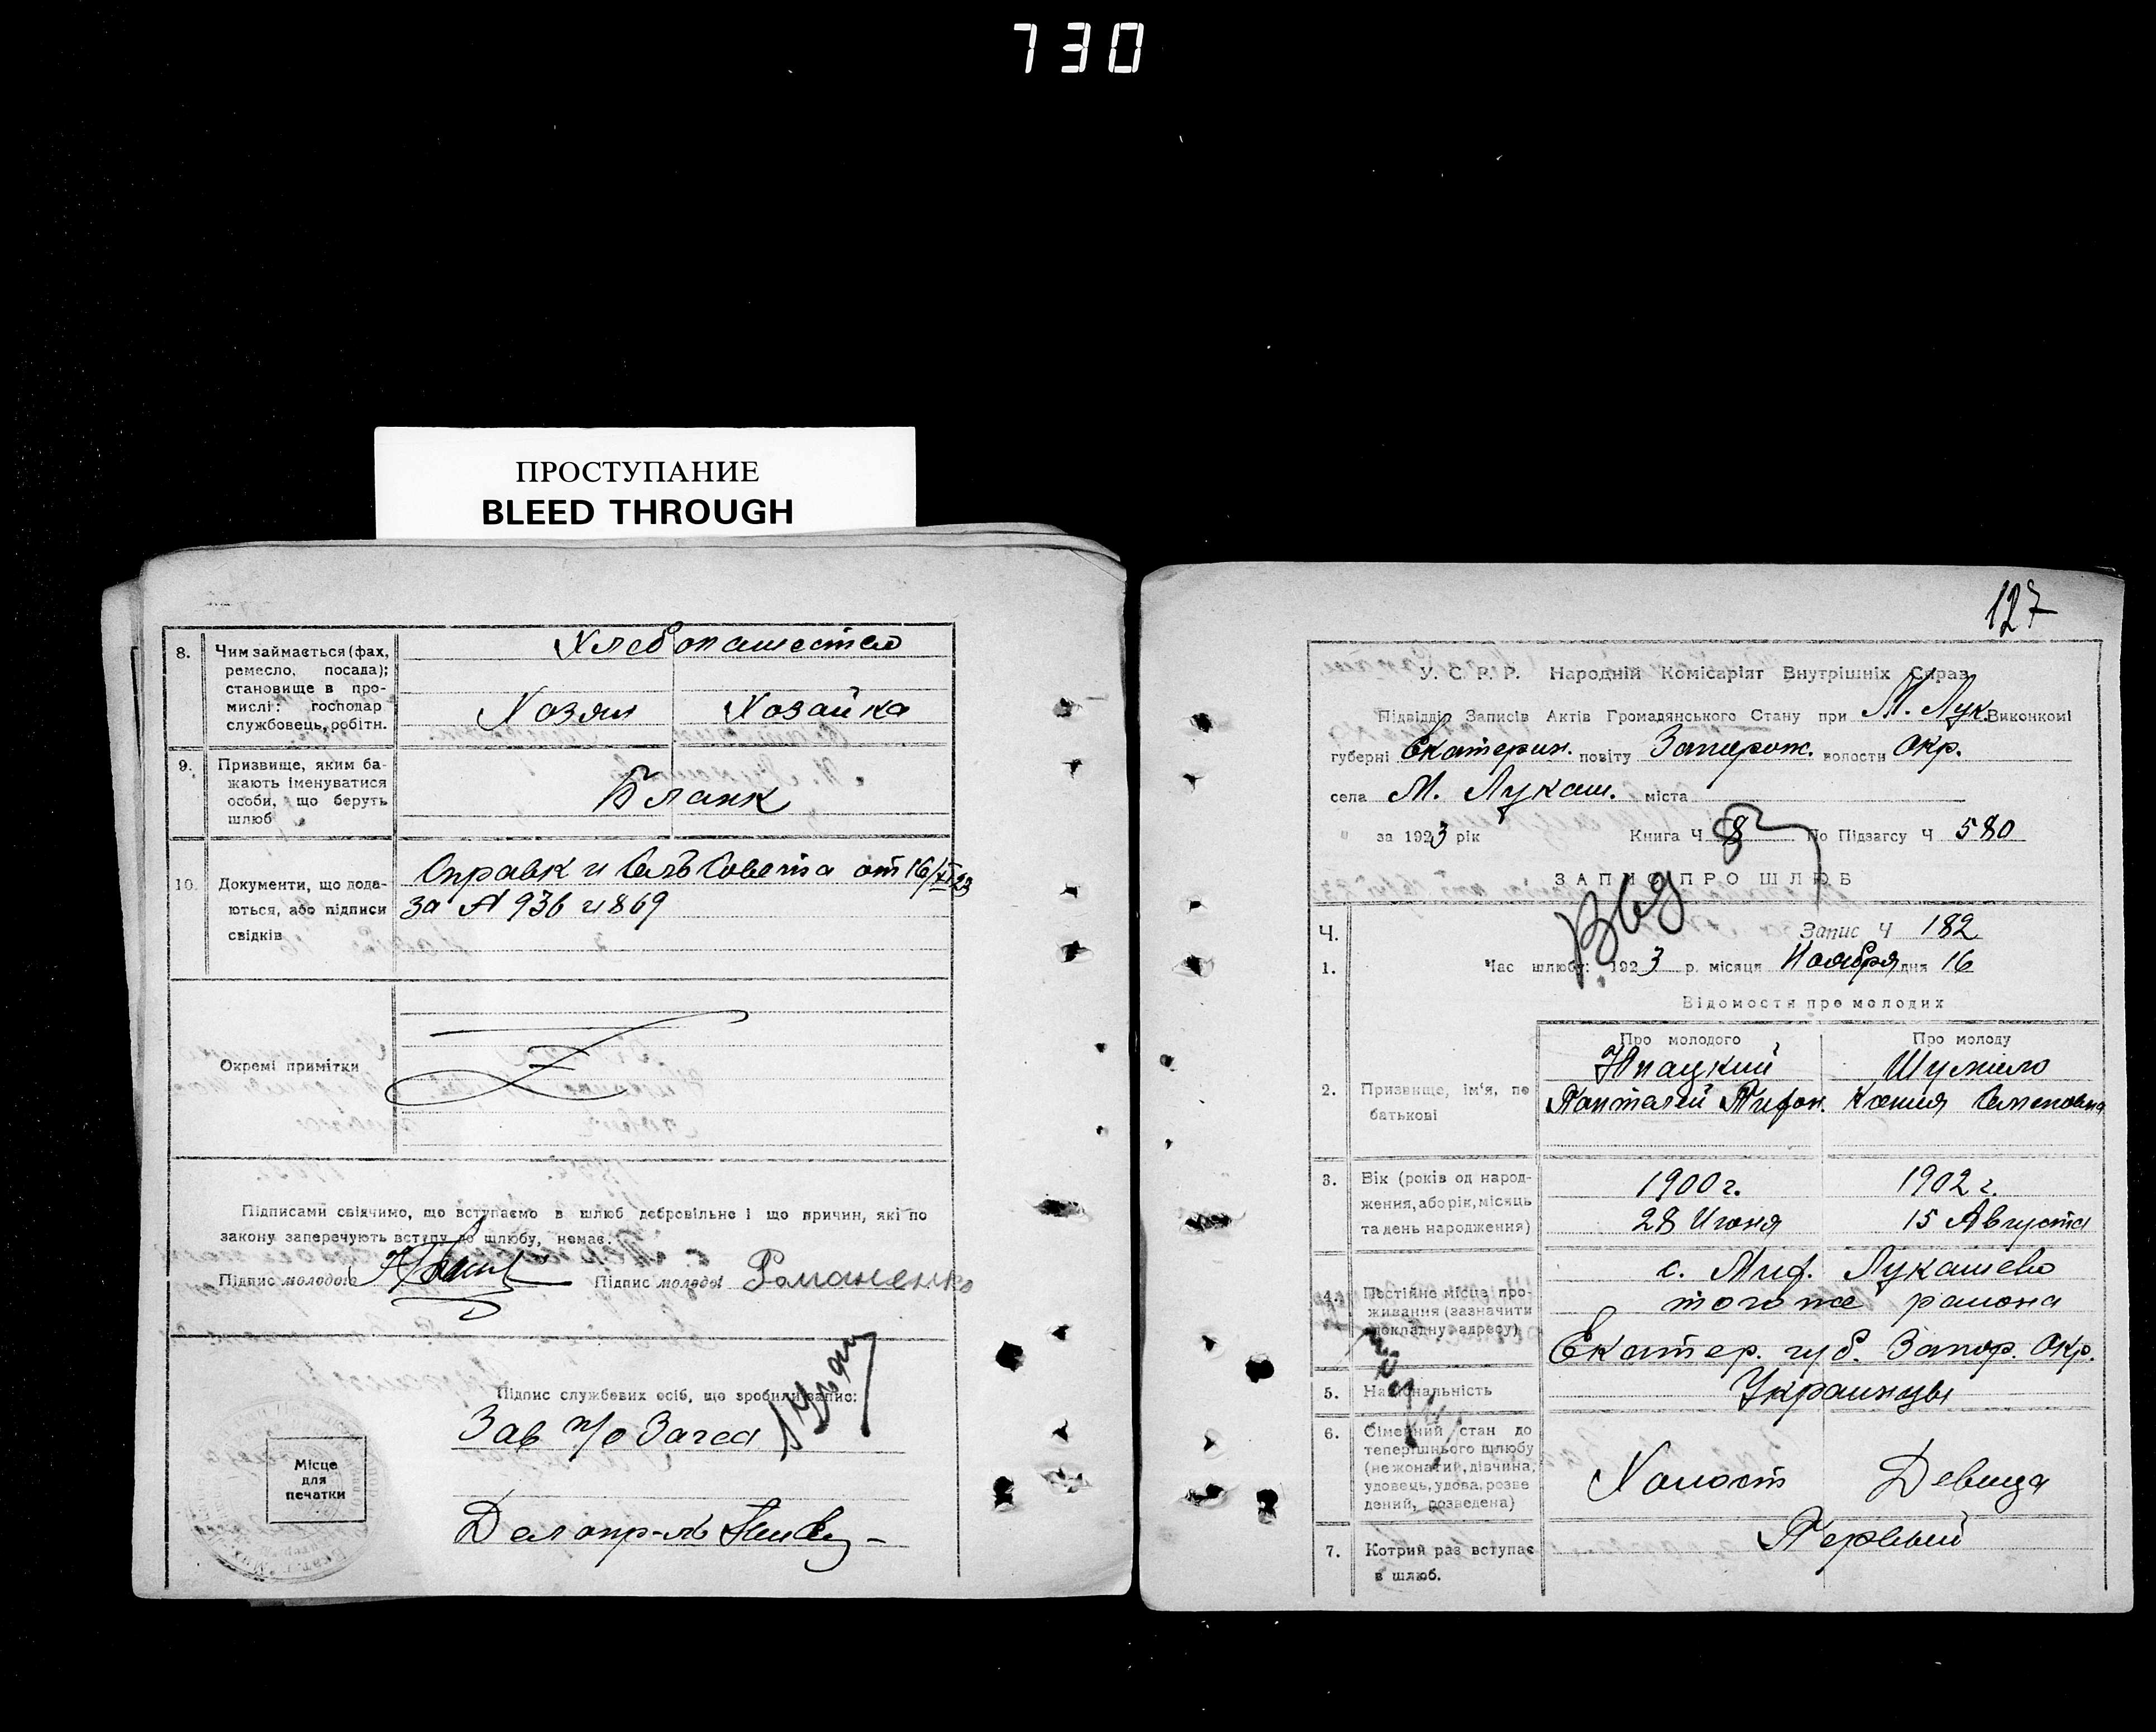 730
ПРОСТУПАНИЕ
BLEED THROUGH
8. Чим займається (фах, ремесло, посада); становище в промислі: господар службовець, робітн.
Хлебопашество
Хозяин Хозайка
9. Призвище, яким бажають іменуватися особи, що беруть шлюб
Бланк
10. Документи, що додаються, або підписи свідків
Справки СельСовета от 16/XI 23
за № 936 и 869
Окремі примітки
Підписами свідчимо, що вступаємо в шлюб добровільно і що причин, які по
закону заперечують вступу до шлюбу, немає.
Підпис молодого Підпис молодої Романенко
Підпис службових осіб, що зробили запис:
Зав п/о Загса
Місце
для
печатки
Делопр-ль
127
У. С. Р. Р. Народній Комісаріят Внутрішніх Справ
Підвідділ Записів Актів Громадянського Стану при М. Лук. Виконкомі
губерні Екатерин. повіту Запорож. волости Окр.
села М. Лукаш. міста
за 1923 рік Книга Ч 8 По Підзагсу Ч 580
ЗАПИС ПРО ШЛЮБ
Ч. Запис Ч 182
1. Час шлюбу: 1923 р. місяця Ноября дня 16
Відомостя про молодих
Про молодого Про молоду
2. Призвище, ім'я, по батькові
Шумило
Пантелей Триф. Ксения Семеновна
3. Вік (років од народження, або рік, місяць та день народження)
1900 г. 1902 г.
28 Июня 15 Августа
4. Постійне місце проживання (зазначити докладну адресу)
с. Лукашево
того же района
Екатер. губ. Запор. Окр.
5. Національність
Украинцы
6. Сімейний стан до теперішнього шлюбу (нежонатий, дівчина, удовець, удова, розведений, розведена)
Холост Девица
7. Котрий раз вступає в шлюб.
Первый